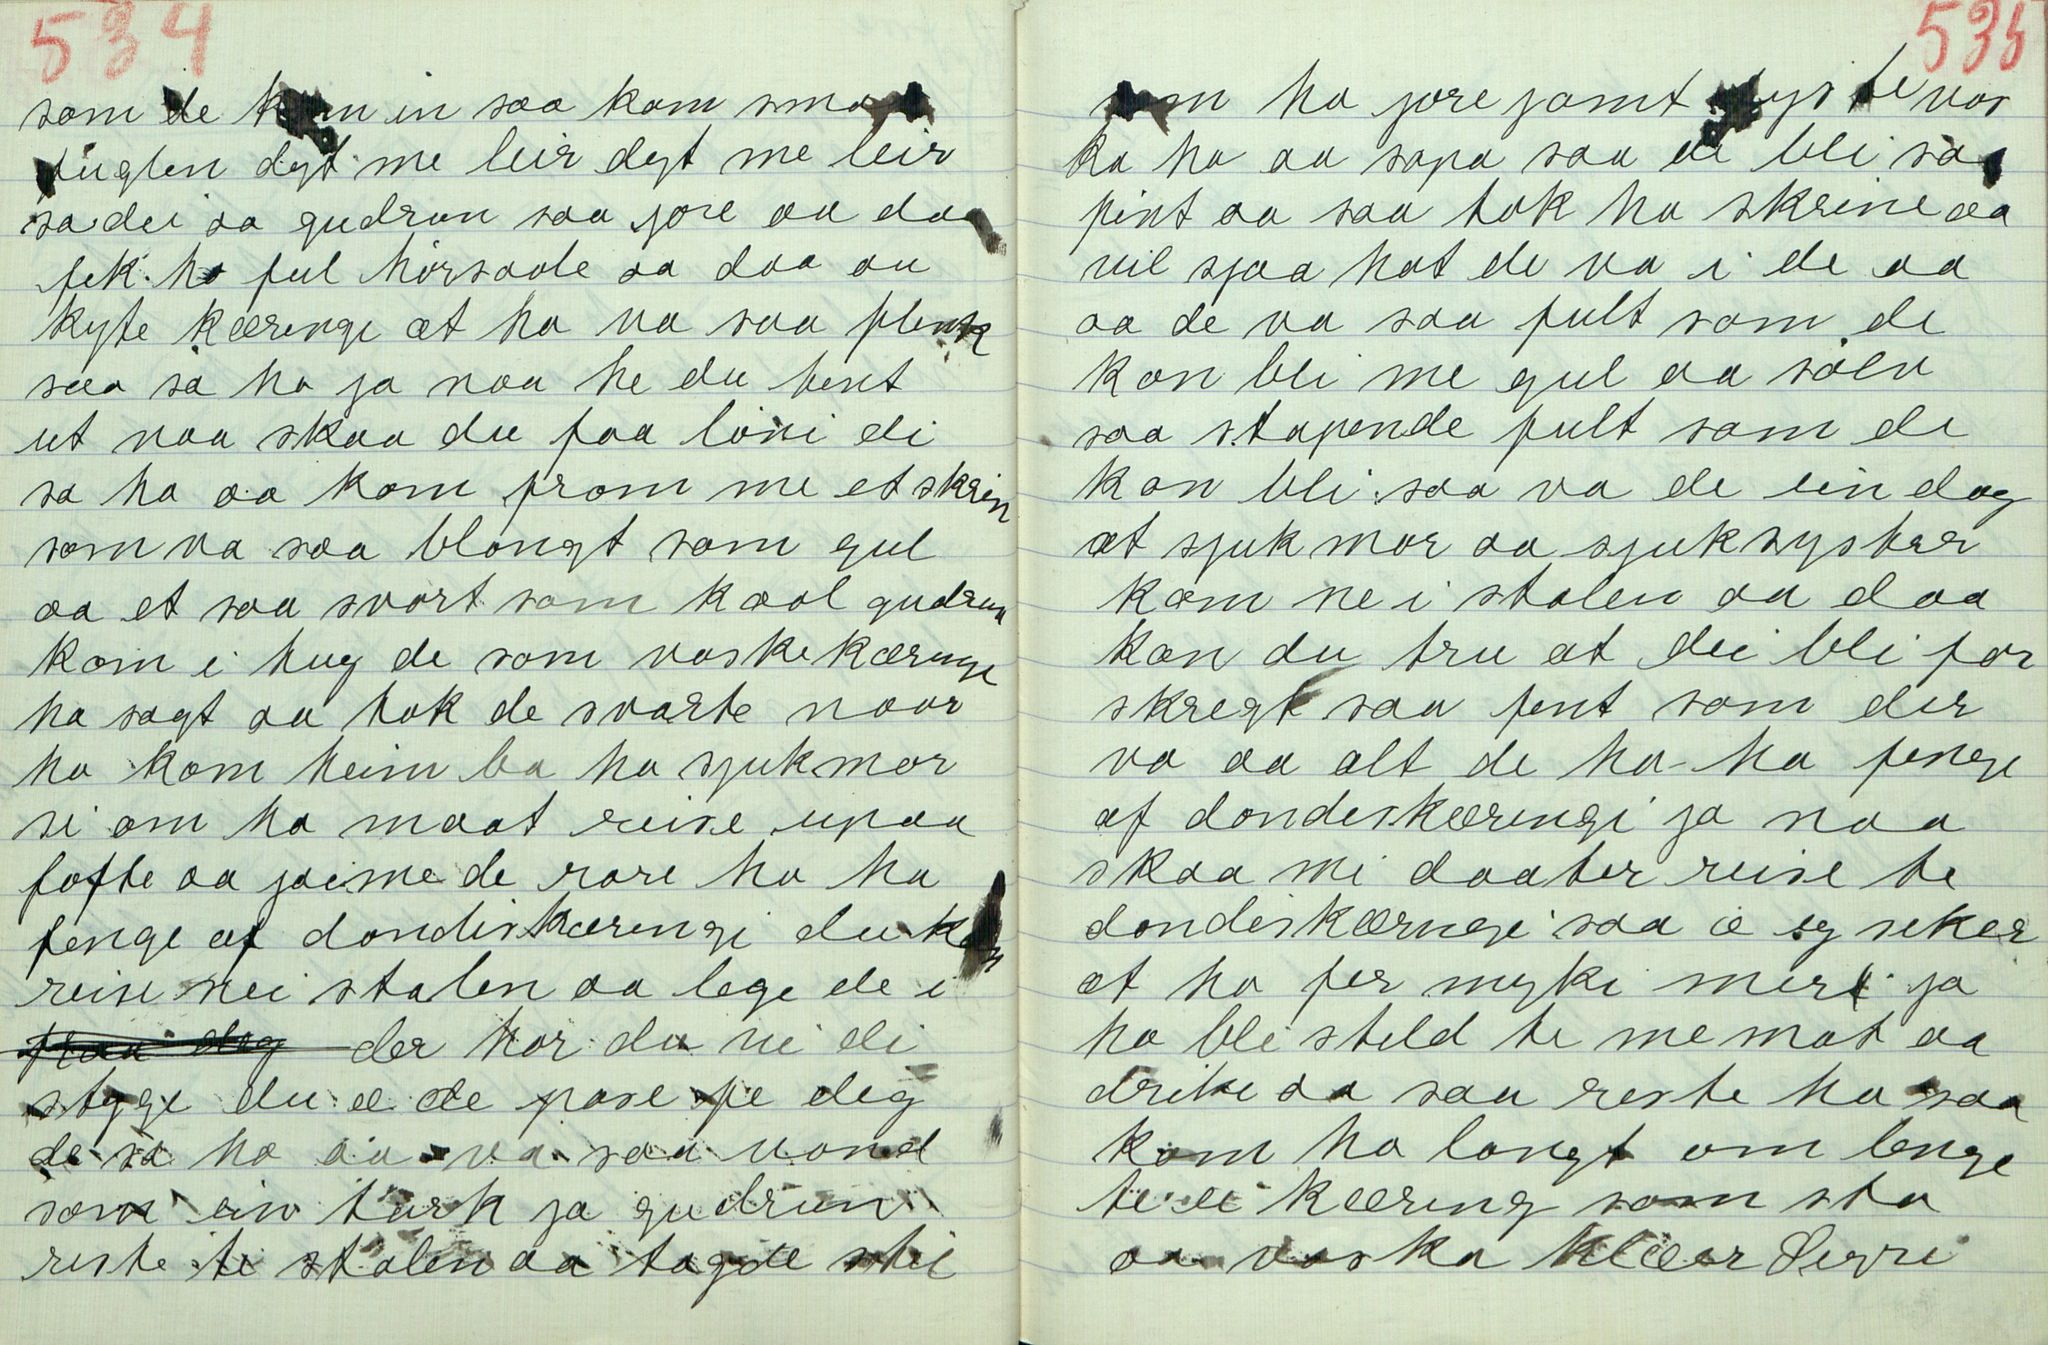 534
som de kom in saa kom smaa
fuglen dyt me leir dyt me leir
sa dei aa gudrun saa jore aa daa
fek ho ful hörsaale aa daa ou
kyte kæringe æt ho va saa flink
saa sa ho ja naa he du tent
ut naa skaa du faa löni di
sa ho aa kom from me et skrin
som va saa blongt som gul
aa et saa svort som kool gudrun
kom i hug de som vaskekæringe
ha sagt aa tok de svarte naar
ho kom heim ba ho sjukmor
si om ho maat reise upaa
lofte aa jöime de rare ho ha
fenge af dondiskæringi du kan
reise nei stalen aa lege de i
der hör du ni di
stygge du æ de pase fe deg
de sa ho aa va saa vond
som ein turk ja gudrun
reste te stalen aa tagde stil
535
som ho jore jamt fyste vas
ka ho aa sopa saa de bli saa
pint aa saa tok ho skrine aa
vil sjaa hot de va i de aa
aa de va saa fult som de
kon bli me gul aa sölv
saa stapende fult som de
kon bli saa va de ein dag
æt sjukmor aa sjuksyster
kom ne i stalen aa daa
kan du tru at dei bli for
skregt saa fent som der
va aa alt de ho ha fenge
af dondeskæringi ja naa
skaa mi daater reise te
dondeskæringe saa æ eg seker
æt ho fer myki meri ja
ho ble steld te me mat aa
drike aa saa reste ho saa
kom ho longt om lenge
te ei kæring som sto
aa vaska klæar Derre